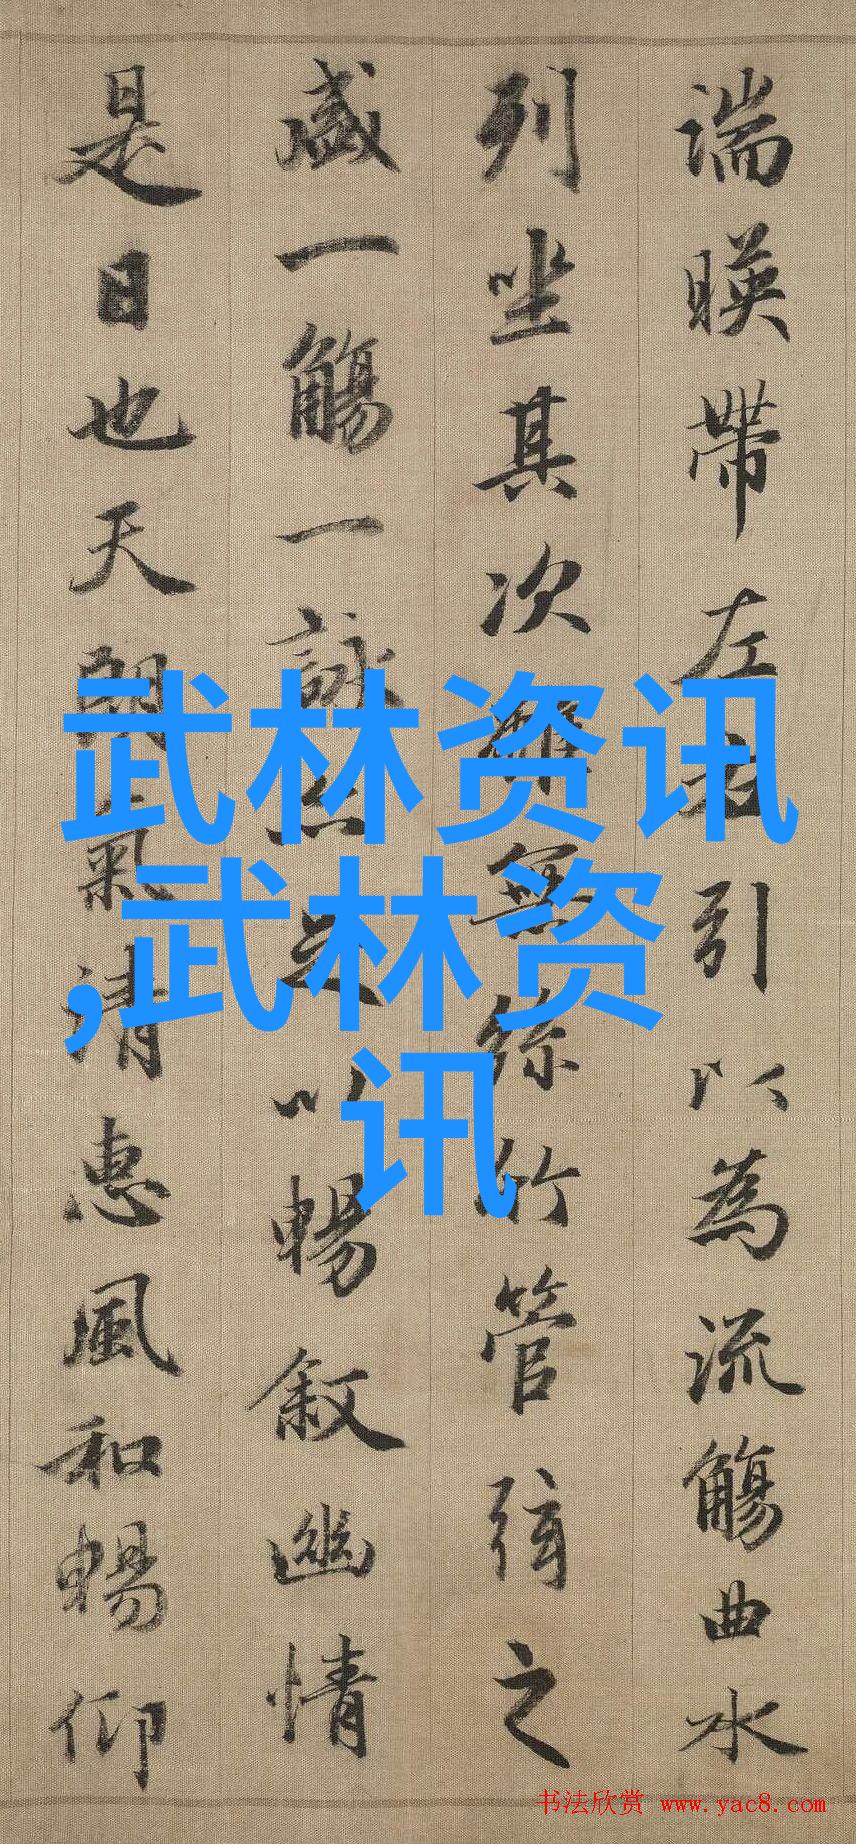 湍暎帶左右引以為流觴曲水
列坐其次雖無絲竹管弦之
盛一觴一詠亦足以暢叙幽情
是日也天朗氣清惠風和暢仰
武林资讯
,武林资
讯
书法欣赏 www.yac8.com